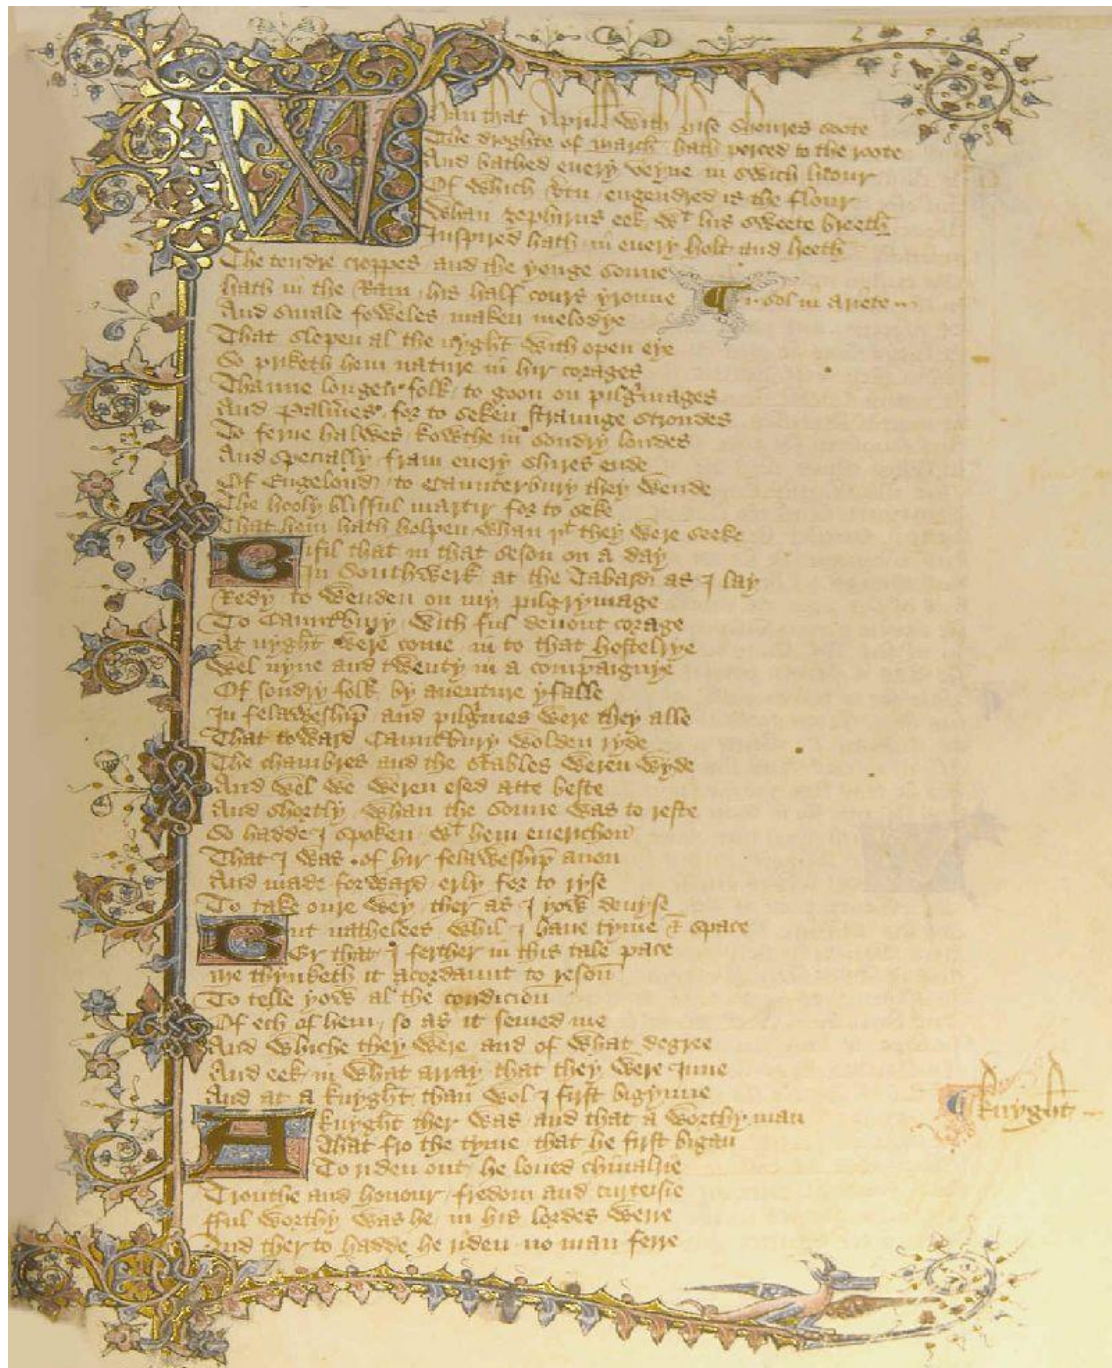 Whan that Aprill with hise shoures soote
The droghte of march hath perced to the roote
And bathed every veyne in swich licour
Of which vtu engendred is the flour
Whan zephirus eek wt his sweete breeth
Inspired hath in euery holt and heeth
The tendre croppes and the yonge sonne
hath in the Ram his half cours yronne
¶ i sol in ariete
And smale foweles maken melodye
That slepen al the nyght with open eye
So priketh hem nature in hir corages
Thanne longen folk to goon on pilgrimages
And Palmeres for to seken straunge strondes
To ferne halwes kowthe in sondry londes
And specially fram euery shires ende
Of Engelond to Caunterbury they wende
The hooly blisful martir for to seke
That hem hath holpen whan þt they were seeke
Bifil that in that seson on a day
In Southwerk at the Tabard as I lay
Redy to wenden on my pilgrymage
To Caunterbury with ful deuout corage
At nyght were come in to that hostelrye
Wel nyne and twenty in a compaignye
Of sondry folk by auenture yfalle
In felaweshipe and pilgrimes were they alle
That toward Caunterbury wolden ryde
The chambres and the stables weren wyde
And wel we weren esed atte beste
And shortly whan the sonne was to reste
So hadde I spoken wt hem euerichon
That I was of hir felaweshipe anon
And made forward erly for to ryse
To take oure wey ther as I yow deuyse
But nathelees whil I haue tyme & space
Er that I ferther in this tale pace
Me thynketh it acordaunt to reson
To telle yow al the condicion
Of ech of hem so as it semed me
And whiche they were and of what degree
And eek in what array that they were Inne
And at a knyght than wol I first bigynne
A knyght ther was and that a worthy man
That fro the tyme that he first bigan
To riden out he loued chiualrie
Trouthe and honour fredom and curteisie
fful worthy was he in his lordes werre
And ther to hadde he riden no man ferre
¶ knyght